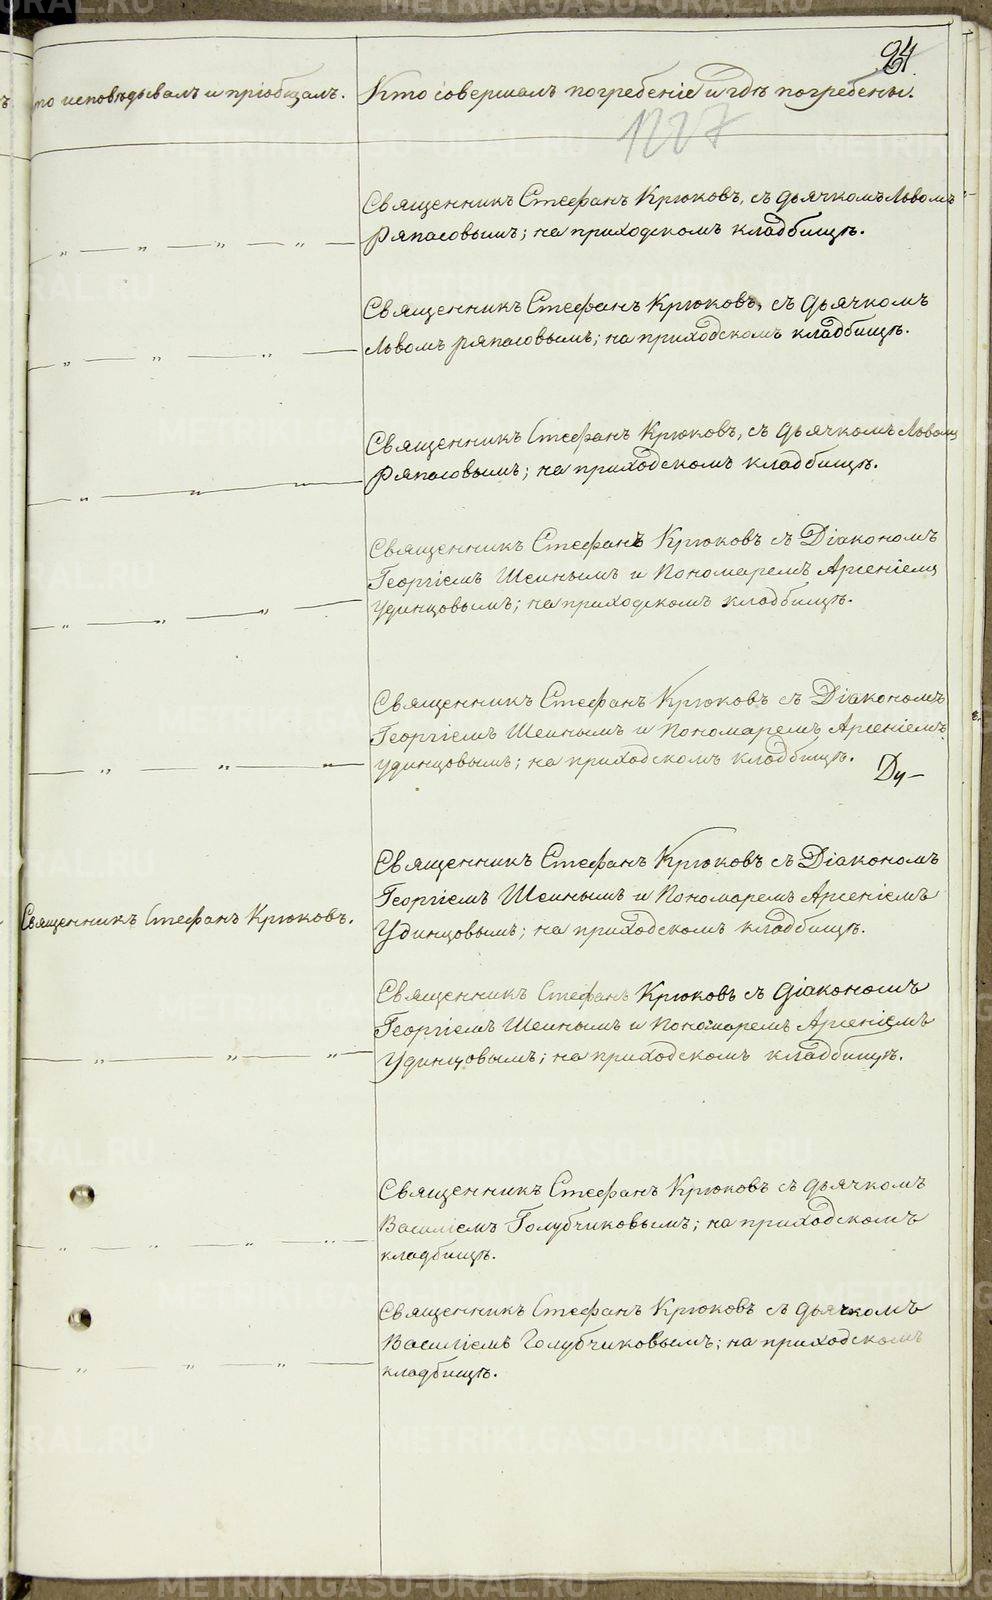 24
Кто исповѣдывалъ и пріобщалъ.
Кто совершалъ погребеніе и гдѣ погребены.
1227
Священникъ Стефанъ Крюковъ, съ дьячкомъ Львомъ
Ряпасовымъ; на приходскомъ кладбищѣ.
Священникъ Стефанъ Крюковъ, съ дьячкомъ
Львомъ Ряпасовымъ; на приходскомъ кладбищѣ.
Священникъ Стефанъ Крюковъ, съ дьячкомъ Львомъ
Ряпасовымъ; на приходскомъ кладбищѣ.
Священникъ Стефанъ Крюковъ съ Діакономъ
Георгіемъ Шеинымъ и Пономаремъ Арсеніемъ
Удинцовымъ; на приходскомъ кладбищѣ.
Священникъ Стефанъ Крюковъ съ Діакономъ
Георгіемъ Шеинымъ и Пономаремъ Арсеніемъ
Удинцовымъ; на приходскомъ кладбищѣ.
Ду-
Священникъ Стефанъ Крюковъ.
Священникъ Стефанъ Крюковъ съ Діакономъ
Георгіемъ Шеинымъ и Пономаремъ Арсеніемъ
Удинцовымъ; на приходскомъ кладбищѣ.
Священникъ Стефанъ Крюковъ съ Діакономъ
Георгіемъ Шеинымъ и Пономаремъ Арсеніемъ
Удинцовымъ; на приходскомъ кладбищѣ.
Священникъ Стефанъ Крюковъ съ дьячкомъ
Василіемъ Голубчиковымъ; на приходскомъ
кладбищѣ.
Священникъ Стефанъ Крюковъ съ дьячкомъ
Василіемъ Голубчиковымъ; на приходскомъ
кладбищѣ.
METRIKI.GASO-URAL.RU